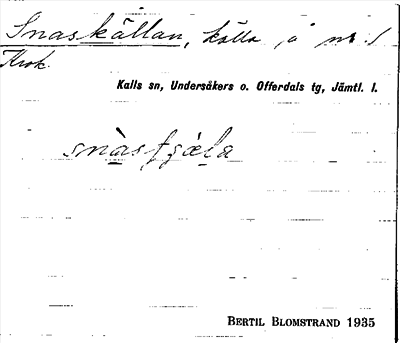 Snaskällan, källa, å nr 1
Krok.
Kalls sn, Undersåkers o. Offerdals tg, Jämtl. l.
snàsʃjæla
BERTIL BLOMSTRAND 1935